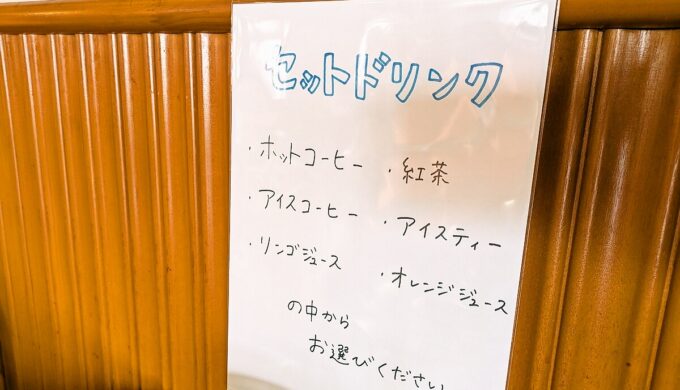 セットドリンク
・ホットコーヒー ・紅茶
・アイスコーヒー ・アイスティー
・リンゴジュース ・オレンジジュース
の中から
お選びください